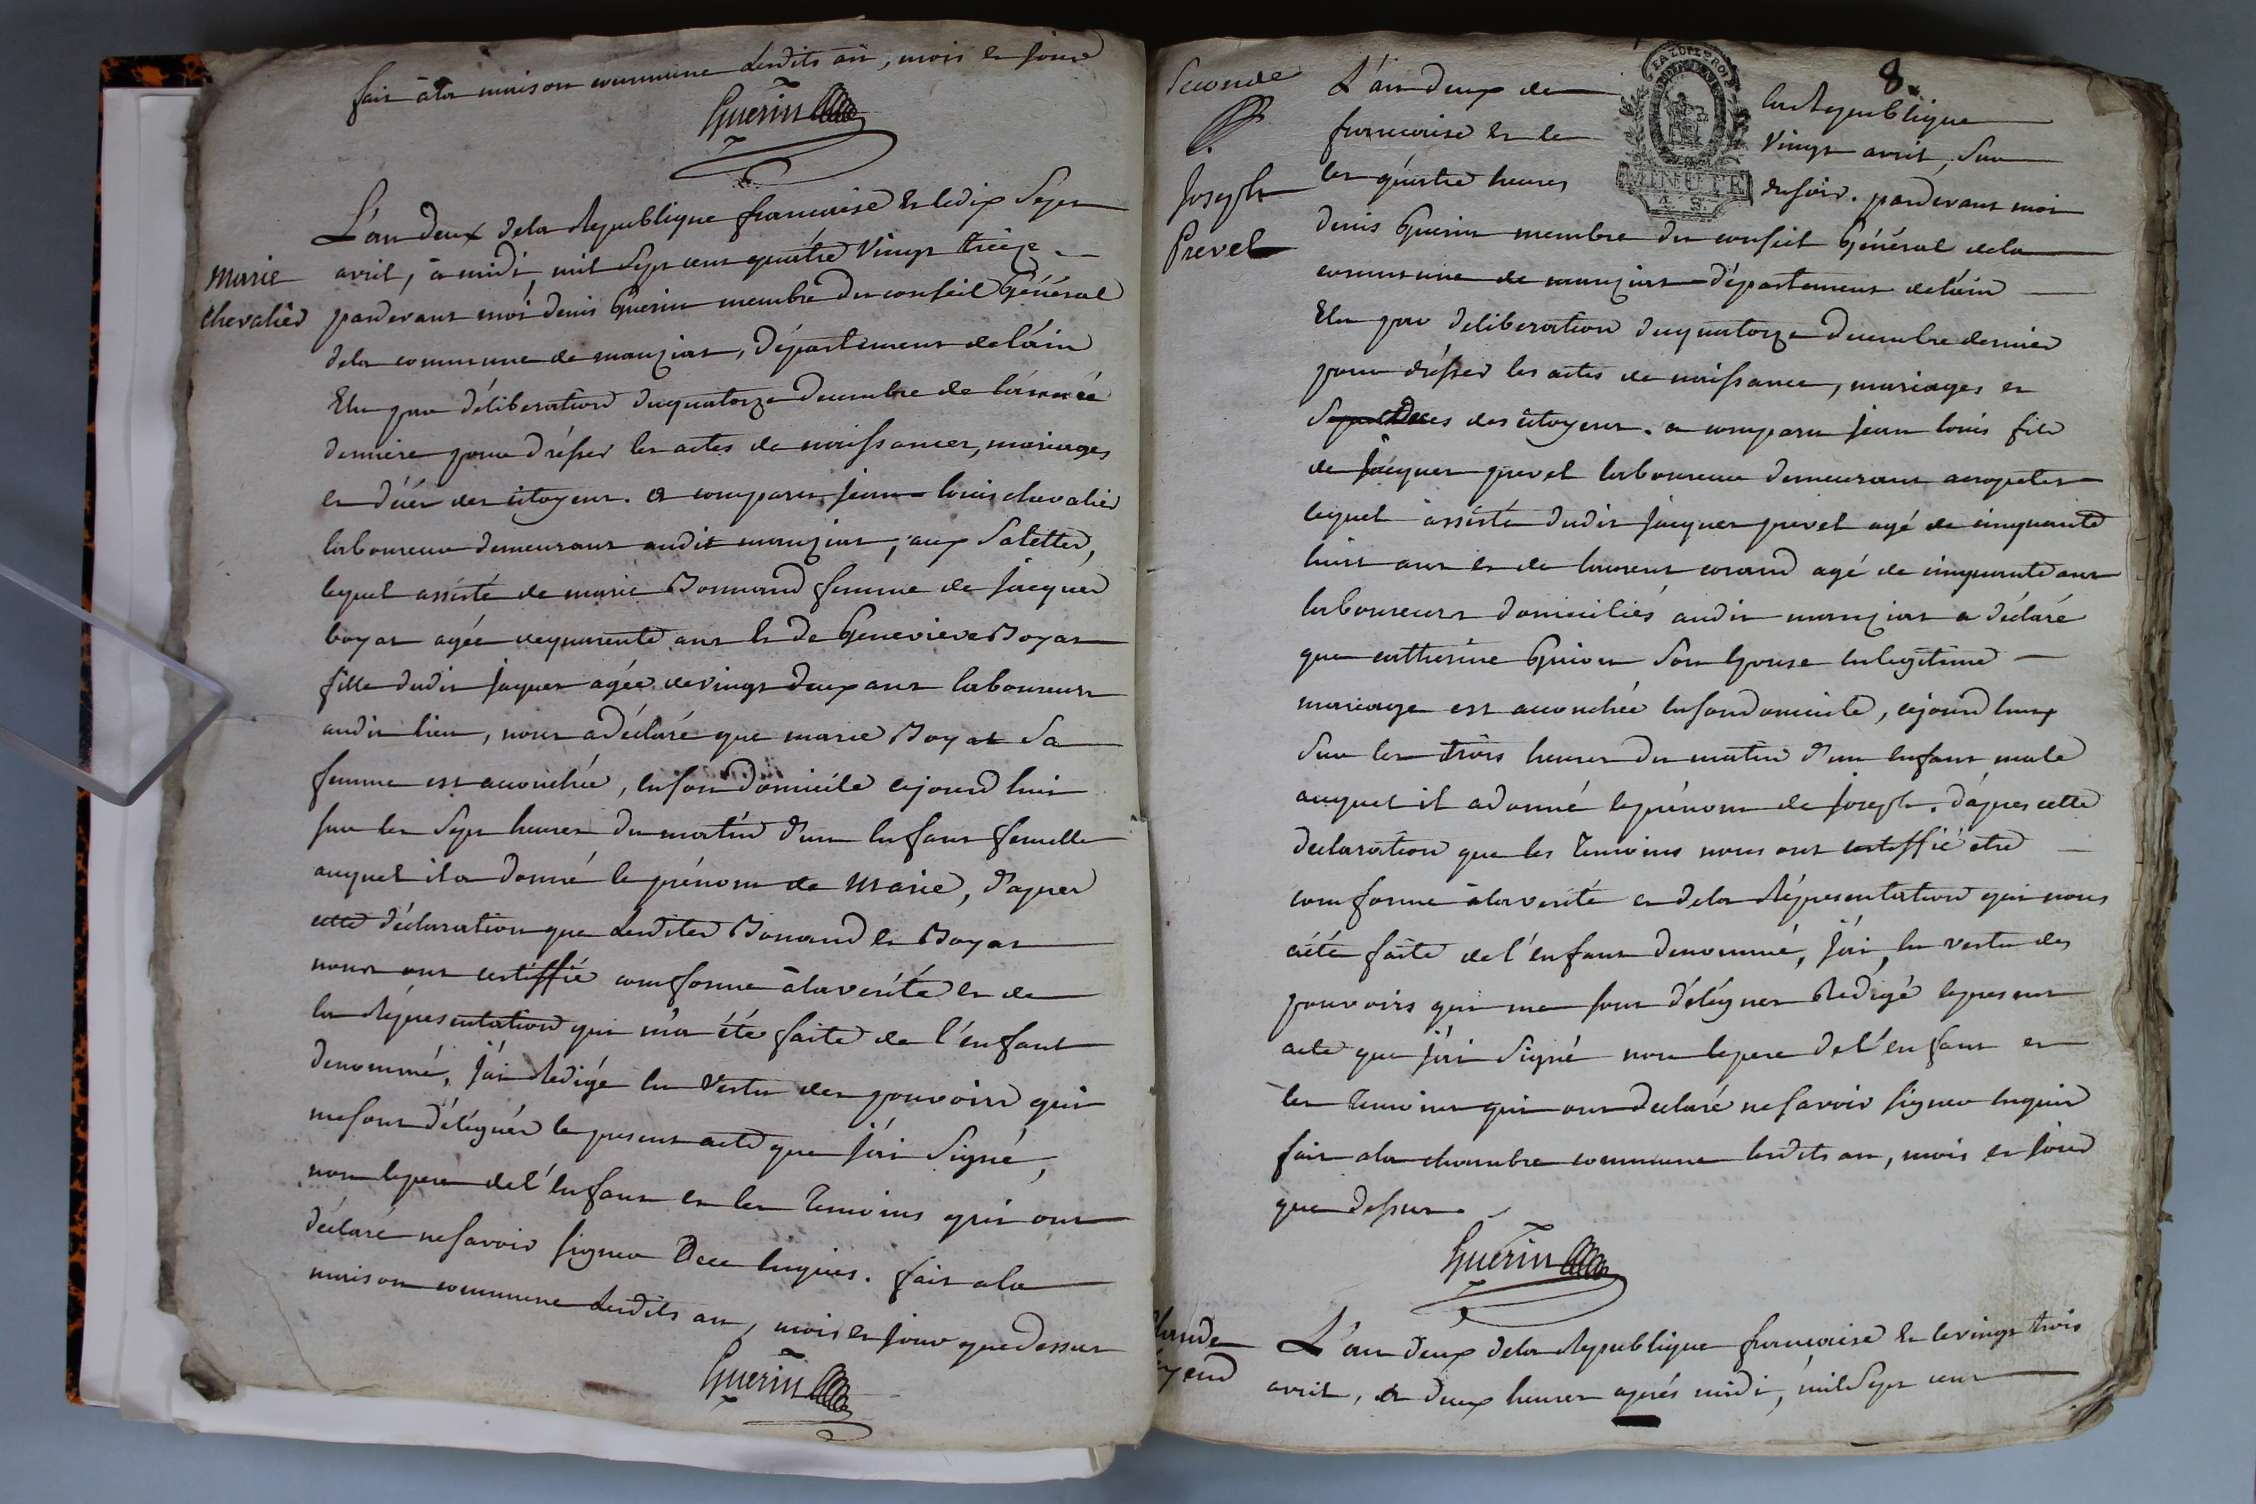 fait à la maison commune lesdits an, mois et jour
Guerin
Marie
chevalier
L'an deux de la Republique francaise et le dix sept
avril, à midi, mil sept cent quatre vingt treize
pardevant moi denis Guerin membre du conseil Général
de la commune de manziat, département de láin
Elu par déliberation du quatorze decembre de lánnée
derniere pour drésser les actes de naissances, mariages
et décés des citoyens. a comparu jean louis chevalier
laboureur demeurant audit manziat, aux Salettes,
lequel assisté de marie Bonnand femme de Jacques
boyat agée de quarente ans et de Genevieve Boyat
fille dudit jaques agée de vingt deux ans laboureurs
audit lieu, nous a déclaré que marie Boyat Sa
femme est accouchée, en son domicile cejourd hui
sur les Sept heures du matin d'un enfant femelle
auquel il a donné le prénom de Marie, d'apres
cette déclaration que lesdites Bonand et Boyat
nous ont certiffié comforme à la verité et de
la Répresentation qui m'a été faite de l'enfant
denommé, j'ai Redigé en vertu des pouvoirs qui
me sont délégués le present acte que j'ai Signé,
non le pere de l'enfant et les temoins qui ont
déclaré ne savoir signer de ce enquis. fait a la
maison commune lesdits an, mois et jour que dessus
Guerin
8
Seconde
Joseph
Prevel
MINUTE
4. S.
L'an deux de la Republique
francaise et le Vingt avril, Sur
les quatre heures du soir. pardevant moi
denis Guerin membre du conseil Général de la
commune de manziat département de láin
Elu par deliberation du quatorze decembre dernier
pour drésser les actes de naissance, mariages et
Deces des citoyens. a comparu jean louis fils
de Jacques prevel laboureur demeurant
lequel assisté dudit jacques prevel agé de cinquante
huit ans et de laurent agé de cinquante ans
laboureurs domiciliés audit manziat a déclaré
que catherine son Epouse en legitime
mariage est accouchée en son domicile, cejourd huy
Sur les trois heures du matin d'un enfant male
auquel il a donné le prénom de Joseph. d'apres cette
declaration que les temoins nous ont certiffié etre
comforme à la verité et de la Répresentation qui nous
a été faite de l'enfant denommé, j'ai, en vertu des
pouvoirs qui me sont délégués Redigé le present
acte que j'ai Signé non le pere de l'enfant et
les temoins qui ont declaré ne savoir signer enquis
fait a la chambre commune lesdits an, mois et jour
que dessus.
Guerin
L'an deux de la Republique francaise et le vingt trois
avril, a deux heures aprés midi, mil Sept cent